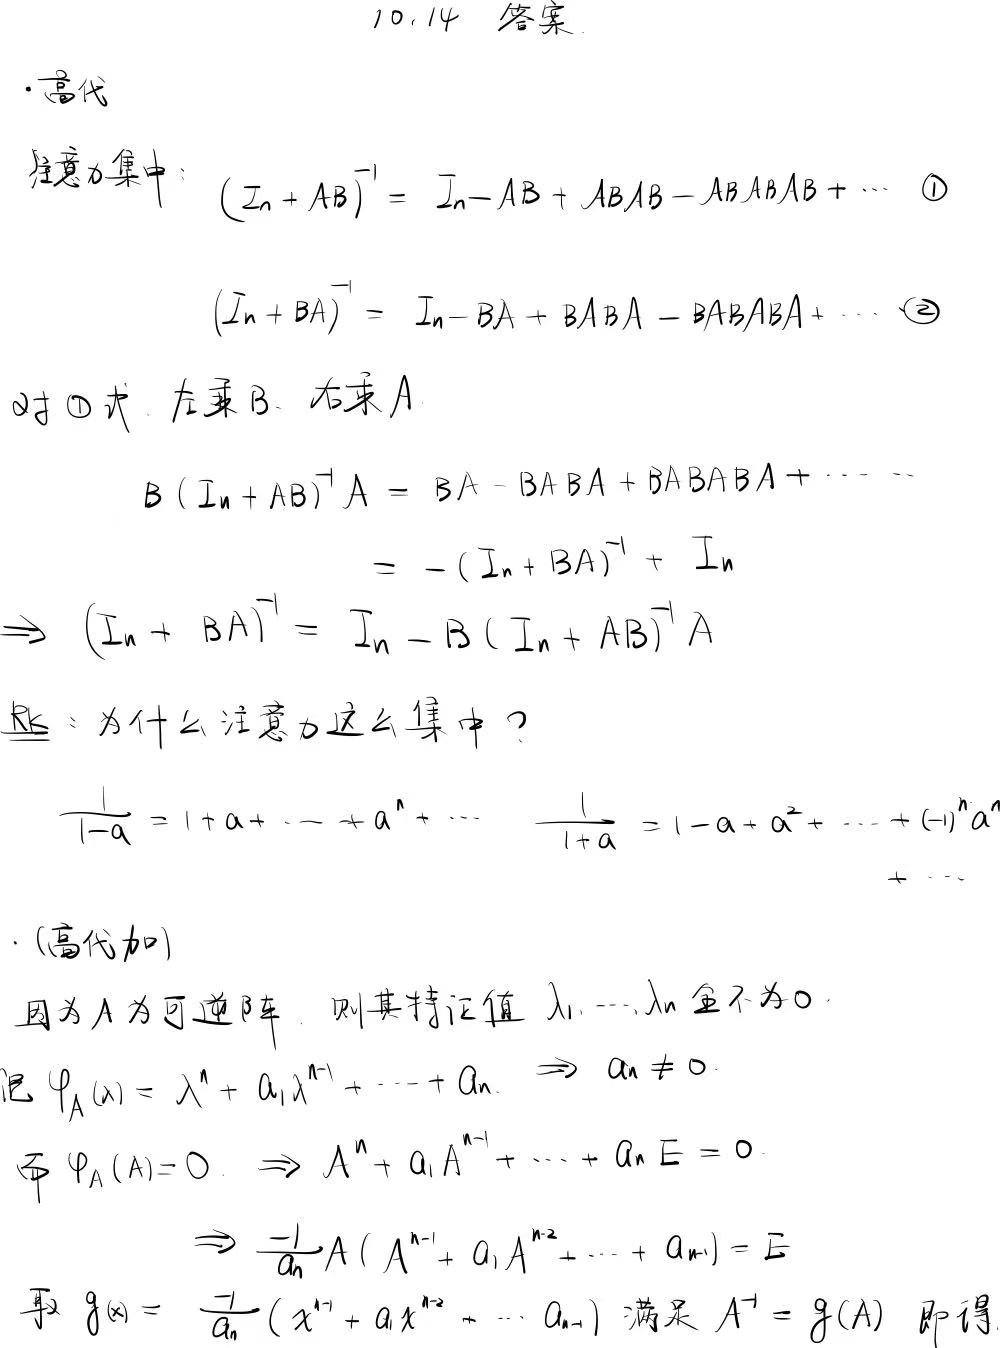 10.14 答案.
·高代
注意力集中: (Iₙ + AB)⁻¹ = Iₙ - AB + ABAB - ABABAB + ··· ①
(Iₙ + BA)⁻¹ = Iₙ - BA + BABA - BABABA + ··· ②
对①式.左乘B、右乘A.
B(Iₙ + AB)⁻¹A = BA - BABA + BABABA + ······
= -(Iₙ + BA)⁻¹ + Iₙ
⇒ (Iₙ + BA)⁻¹ = Iₙ - B(Iₙ + AB)⁻¹A
RK: 为什么注意力这么集中?
1/(1-a) = 1 + a + ··· + aⁿ + ··· 1/(1+a) = 1 - a + a² + ··· + (-1)ⁿaⁿ
+ ···
·(高代加)
因为A为可逆阵.则其特征值 λ₁, ···, λₙ 全不为0.
记 φ_A(λ) = λⁿ + a₁λⁿ⁻¹ + ··· + aₙ. ⇒ aₙ ≠ 0.
而 φ_A(A) = 0. ⇒ Aⁿ + a₁Aⁿ⁻¹ + ··· + aₙE = 0.
⇒ -1/aₙ A(Aⁿ⁻¹ + a₁Aⁿ⁻² + ··· + aₙ₋₁) = E
取 g(x) = -1/aₙ (xⁿ⁻¹ + a₁xⁿ⁻² + ··· aₙ₋₁) 满足 A⁻¹ = g(A) 即得.